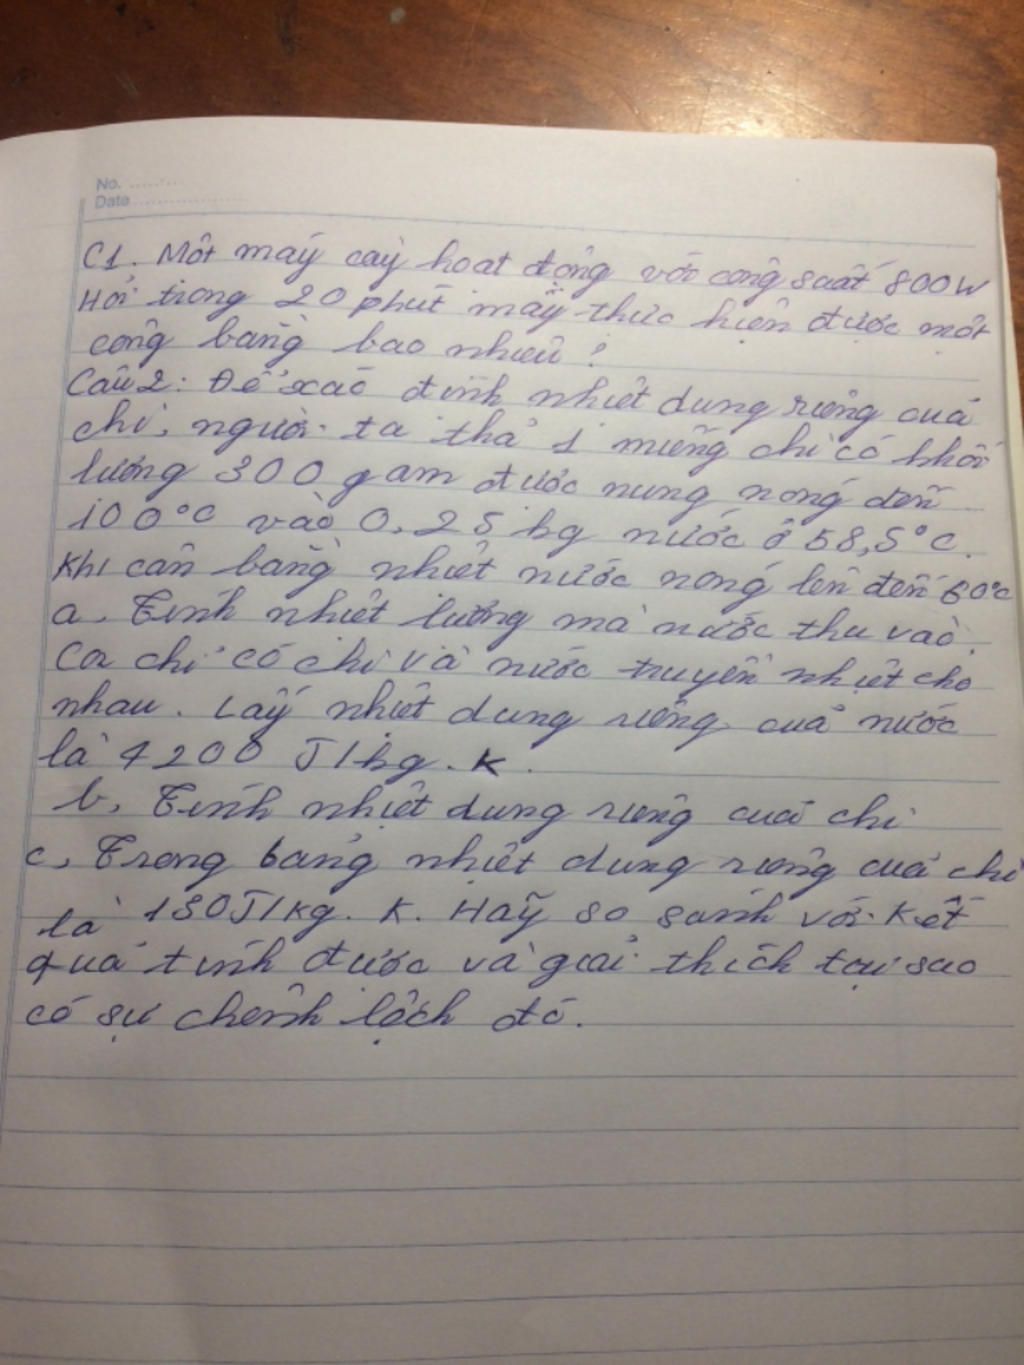 No. ........
Date ....................
C1. Một máy cày hoạt động với công suất 800W
Hỏi trong 20 phút máy thực hiện được một
công bằng bao nhiêu?
Câu 2: Để xác định nhiệt dung riêng của
chì, người ta thả 1 miếng chì có khối
lượng 300 gam được nung nóng đến
100°C vào 0,25 kg nước ở 58,5°C.
Khi cân bằng nhiệt nước nóng lên đến 60°C
a, Tính nhiệt lượng mà nước thu vào.
Coi chỉ có chì và nước truyền nhiệt cho
nhau. Lấy nhiệt dung riêng của nước
là 4200 J/kg.K.
b, Tính nhiệt dung riêng của chì
c, Trong bảng nhiệt dung riêng của chì
là 130J/kg.K. Hãy so sánh với kết
quả tính được và giải thích tại sao
có sự chênh lệch đó.